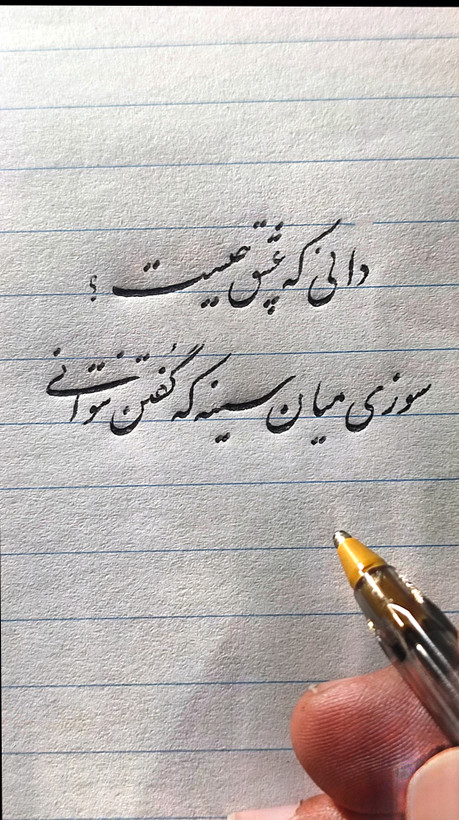 دانی که عشق چیست ؟
سوزی میان سینه که گفتن نتوانی